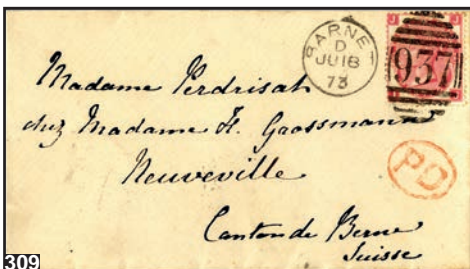 BARNET
D
JU 18
73
J J
937
Madame Perdrisat
chez Madame H. Grossmann
Neuveville
PD
Canton de Berne
Suisse
309